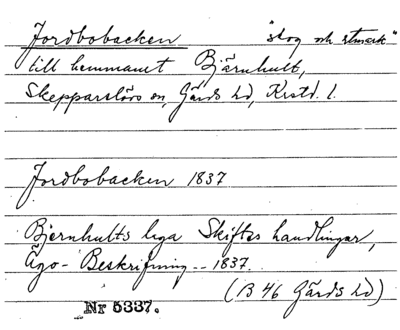 Jordbobacken "skog och utmark"
till hemmanet Bjärnhult,
Skepparslövs sn, Gärds hd, Krstd. l.
Jordbobacken 1837
Bjernhults laga Skiftes handlingar,
Ägo-Beskrifning -- 1837.
(B 46 Gärds hd)
Nr 5337.